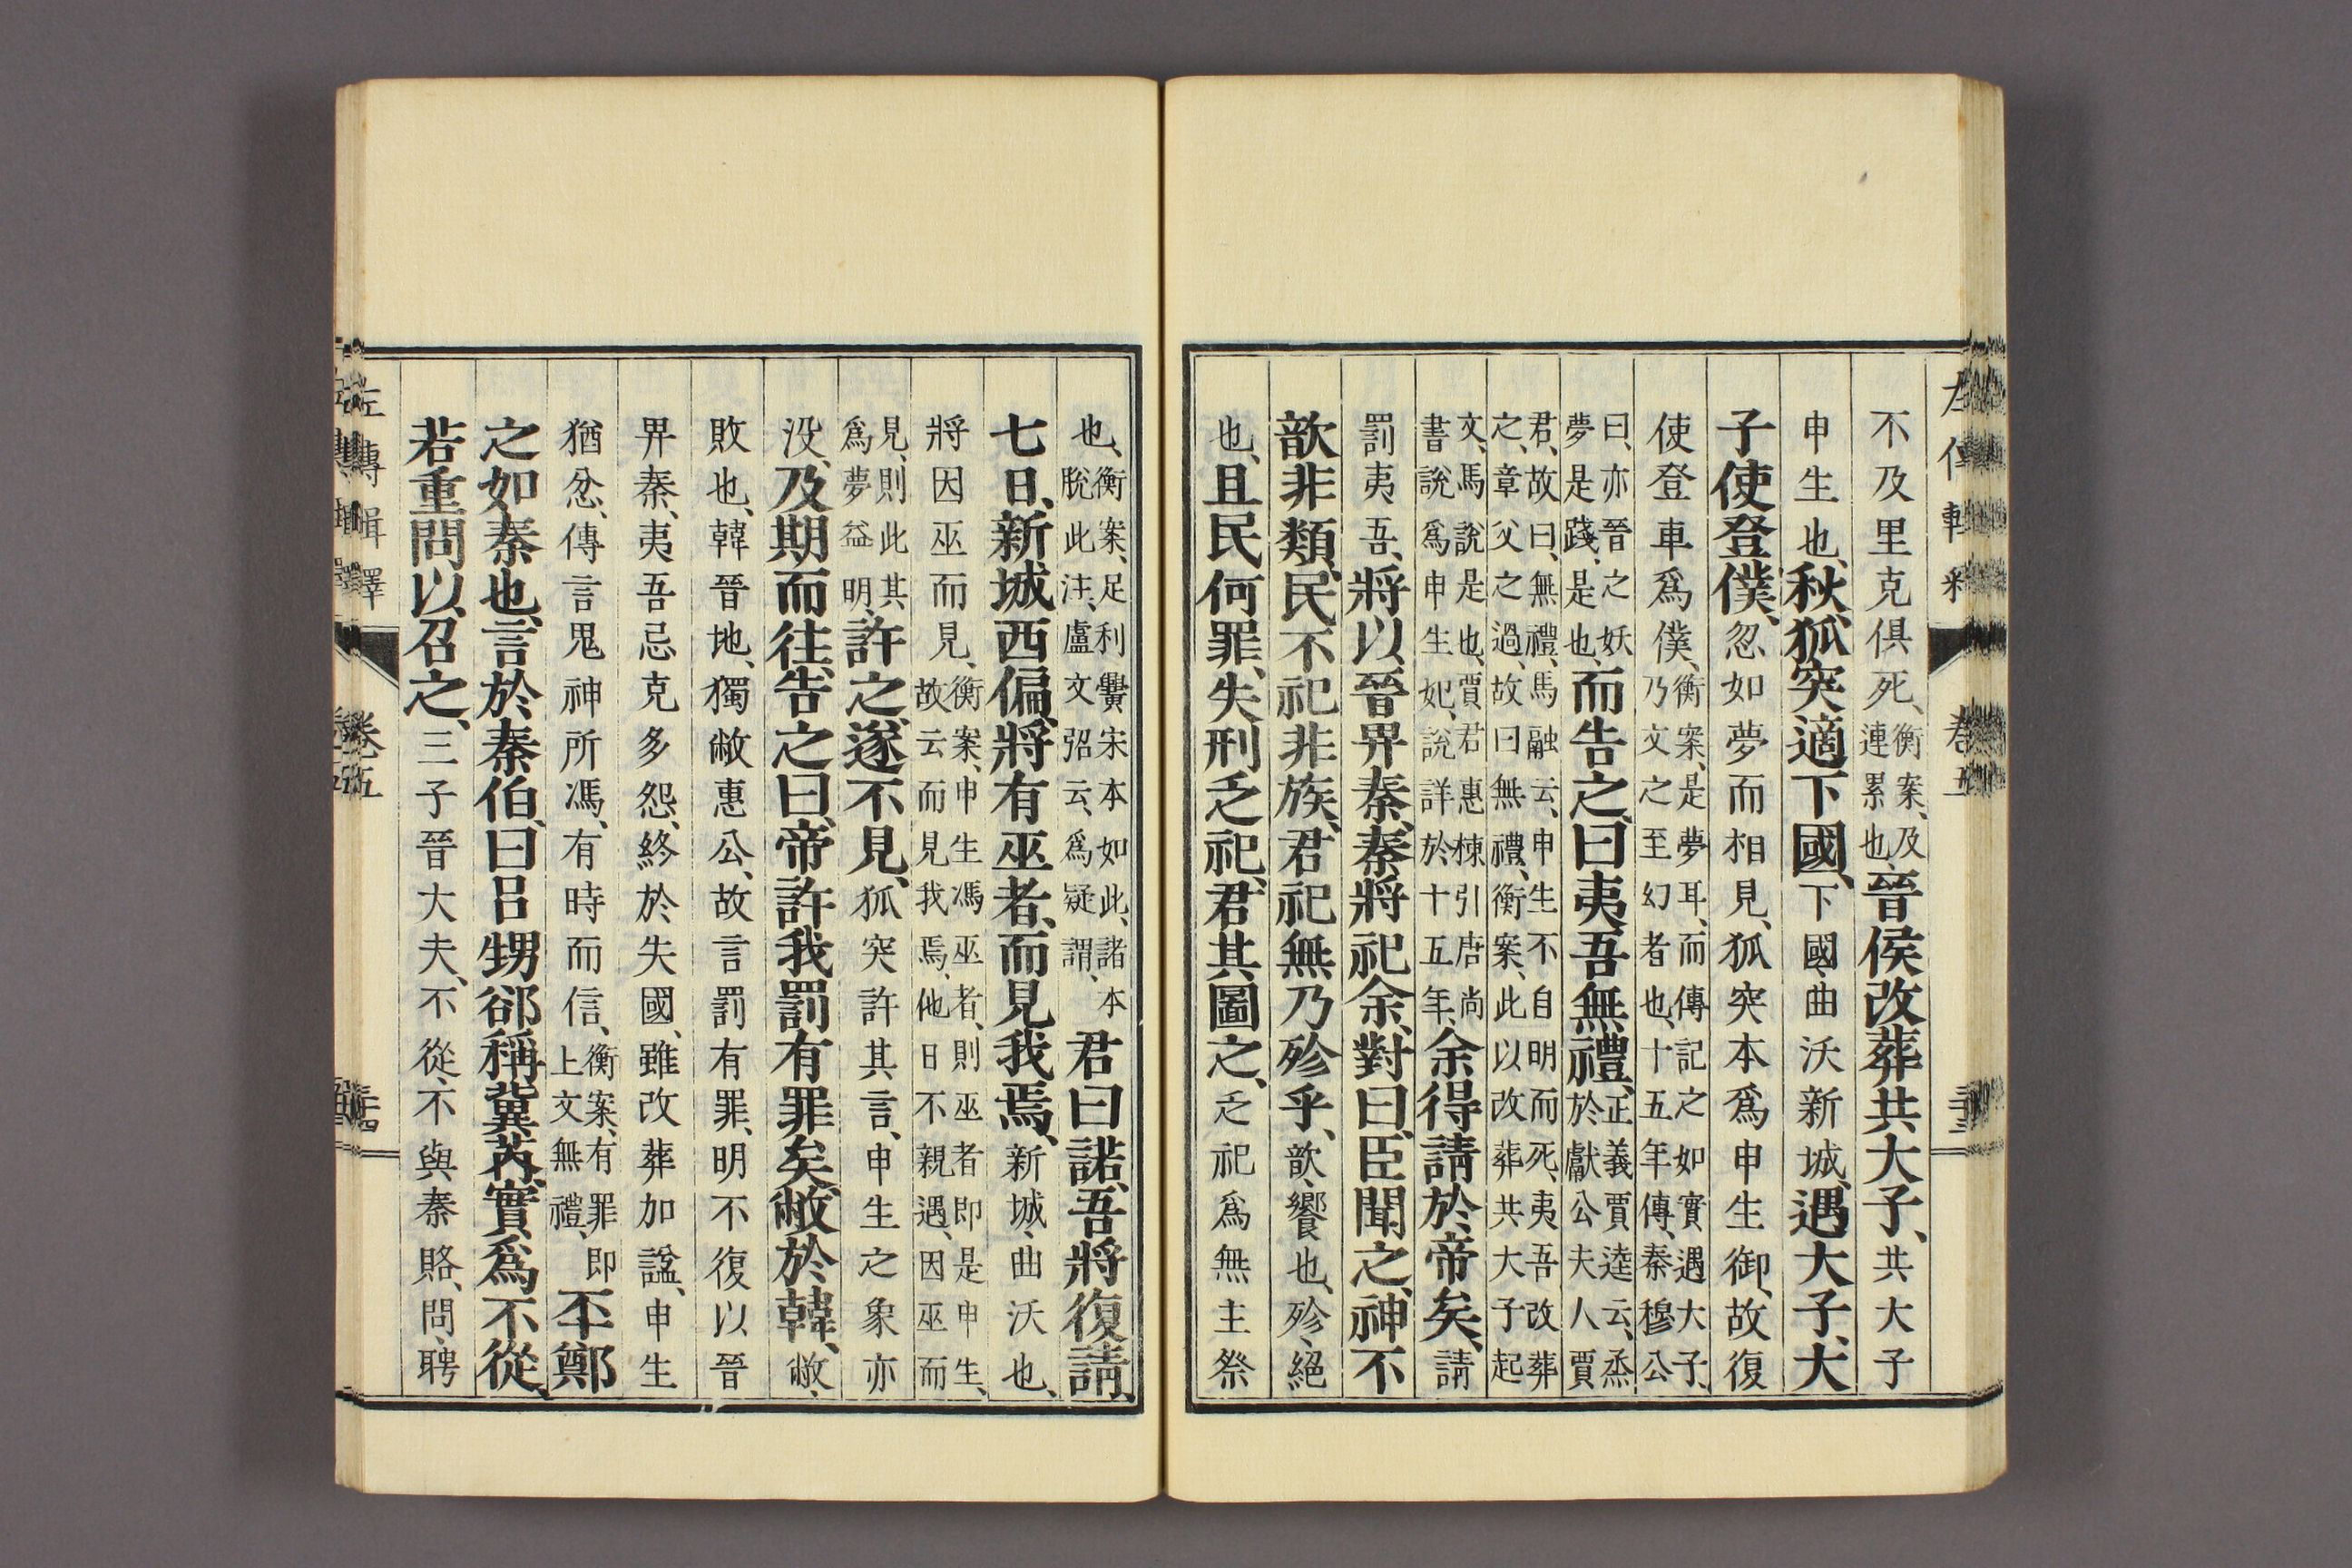 不及里克俱死、衡案、及連累也、晉侯改葬共大子、共大子
申生也、秋、狐突適下國、下國、曲沃新城、遇大子、大
子使登僕、忽如夢而相見、狐突本爲申生御、故復
使登車爲僕、衡案、是夢耳、而傳記之如實遇大子、乃文之至幻者也、十五年傳、秦穆公
曰、亦晉之妖夢是踐、是也、而告之曰、夷吾無禮、正義賈逵云、烝於獻公夫人賈
君、故曰、無禮、馬融云、申生不自明而死、夷吾改葬之、章父之過、故曰無禮、衡案、此以改葬共大子起
文、馬說是也、賈君惠棟引唐尚書說爲申生妃、說詳於十五年、余得請於帝矣、請
罰夷吾、將以晉畀秦、秦將祀余、對曰、臣聞之、神不
歆非類、民不祀非族、君祀無乃殄乎、歆、饗也、殄、絕
也、且民何罪、失刑乏祀、君其圖之、乏祀爲無主祭
也、衡案、足利學宋本如此、諸本脫此注、盧文弨云、爲疑謂、君曰、諾、吾將復請、
七日、新城西偏、將有巫者、而見我焉、新城、曲沃也、
將因巫而見、衡案、申生馮巫者、則巫者即是申生、故云而見我焉、他日不親遇、因巫而
見、則此其爲夢益明、許之、遂不見、狐突許其言、申生之象亦
沒、及期而往、告之曰、帝許我罰有罪矣、敝於韓、敝、
敗也、韓晉地、獨敝惠公、故言罰有罪、明不復以晉
畀秦、夷吾忌克多怨、終於失國、雖改葬加諡、申生
猶忿、傳言鬼神所馮、有時而信、衡案、有罪即上文無禮、丕鄭
之如秦也、言於秦伯、曰、呂甥郤稱冀芮、實爲不從、
若重問以召之、三子晉大夫、不從、不與秦賂、問、聘
左傳輯釋 卷五